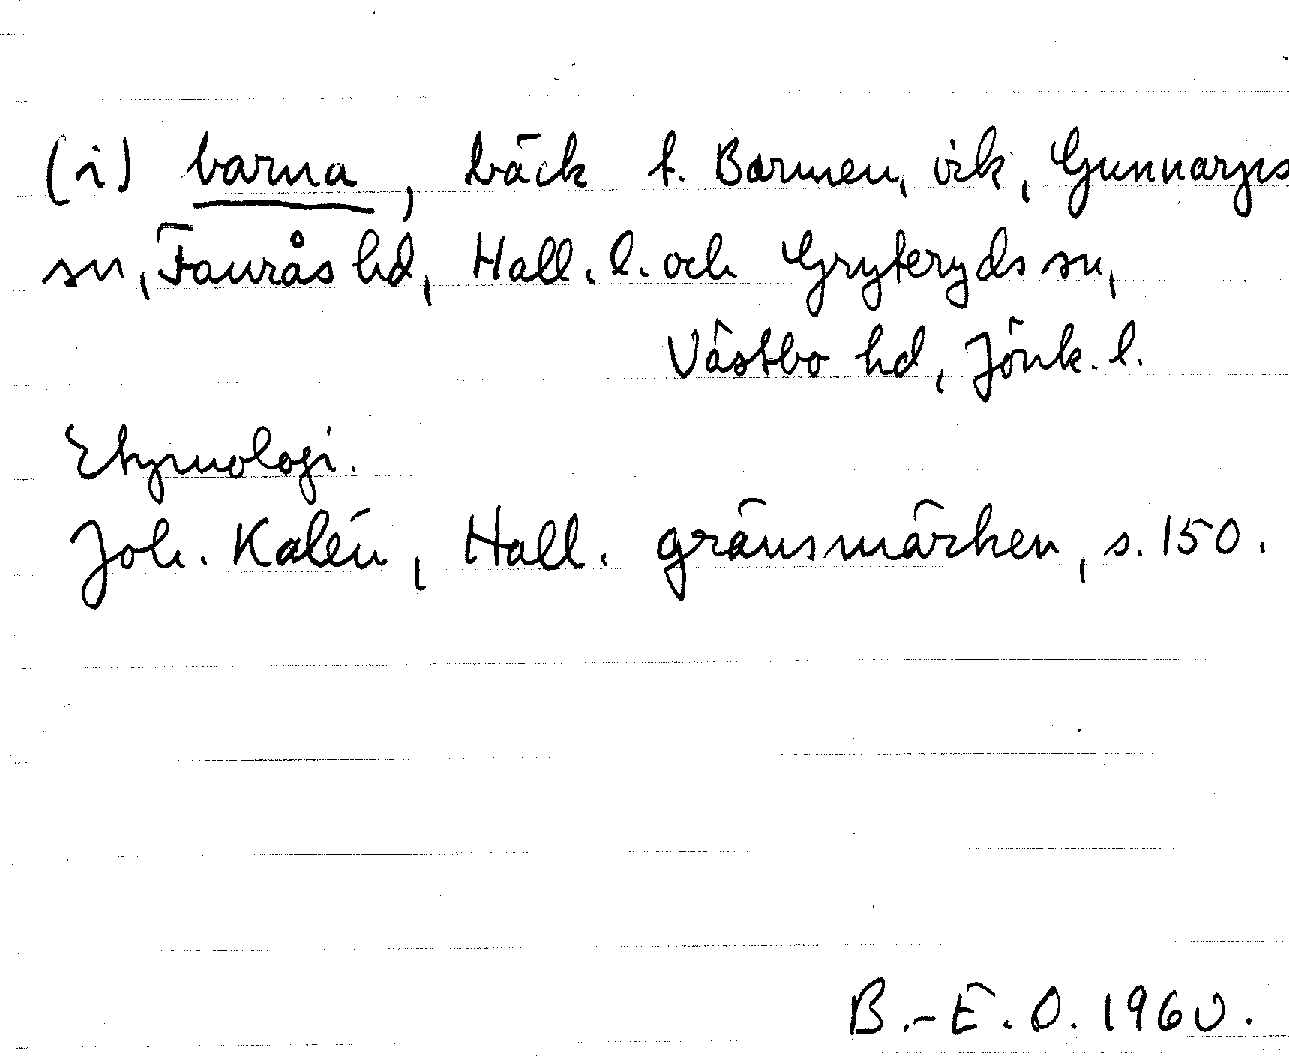 (i) barna, bäck t. Barmen, vik, Gunnarps
sn, Faurås hd, Hall. l. och Gryteryds sn,
Västbo hd, Jönk. l.
Etymologi.
Joh. Kalén, Hall. gränsmärken, s. 150.
B.-E. O. 1960.